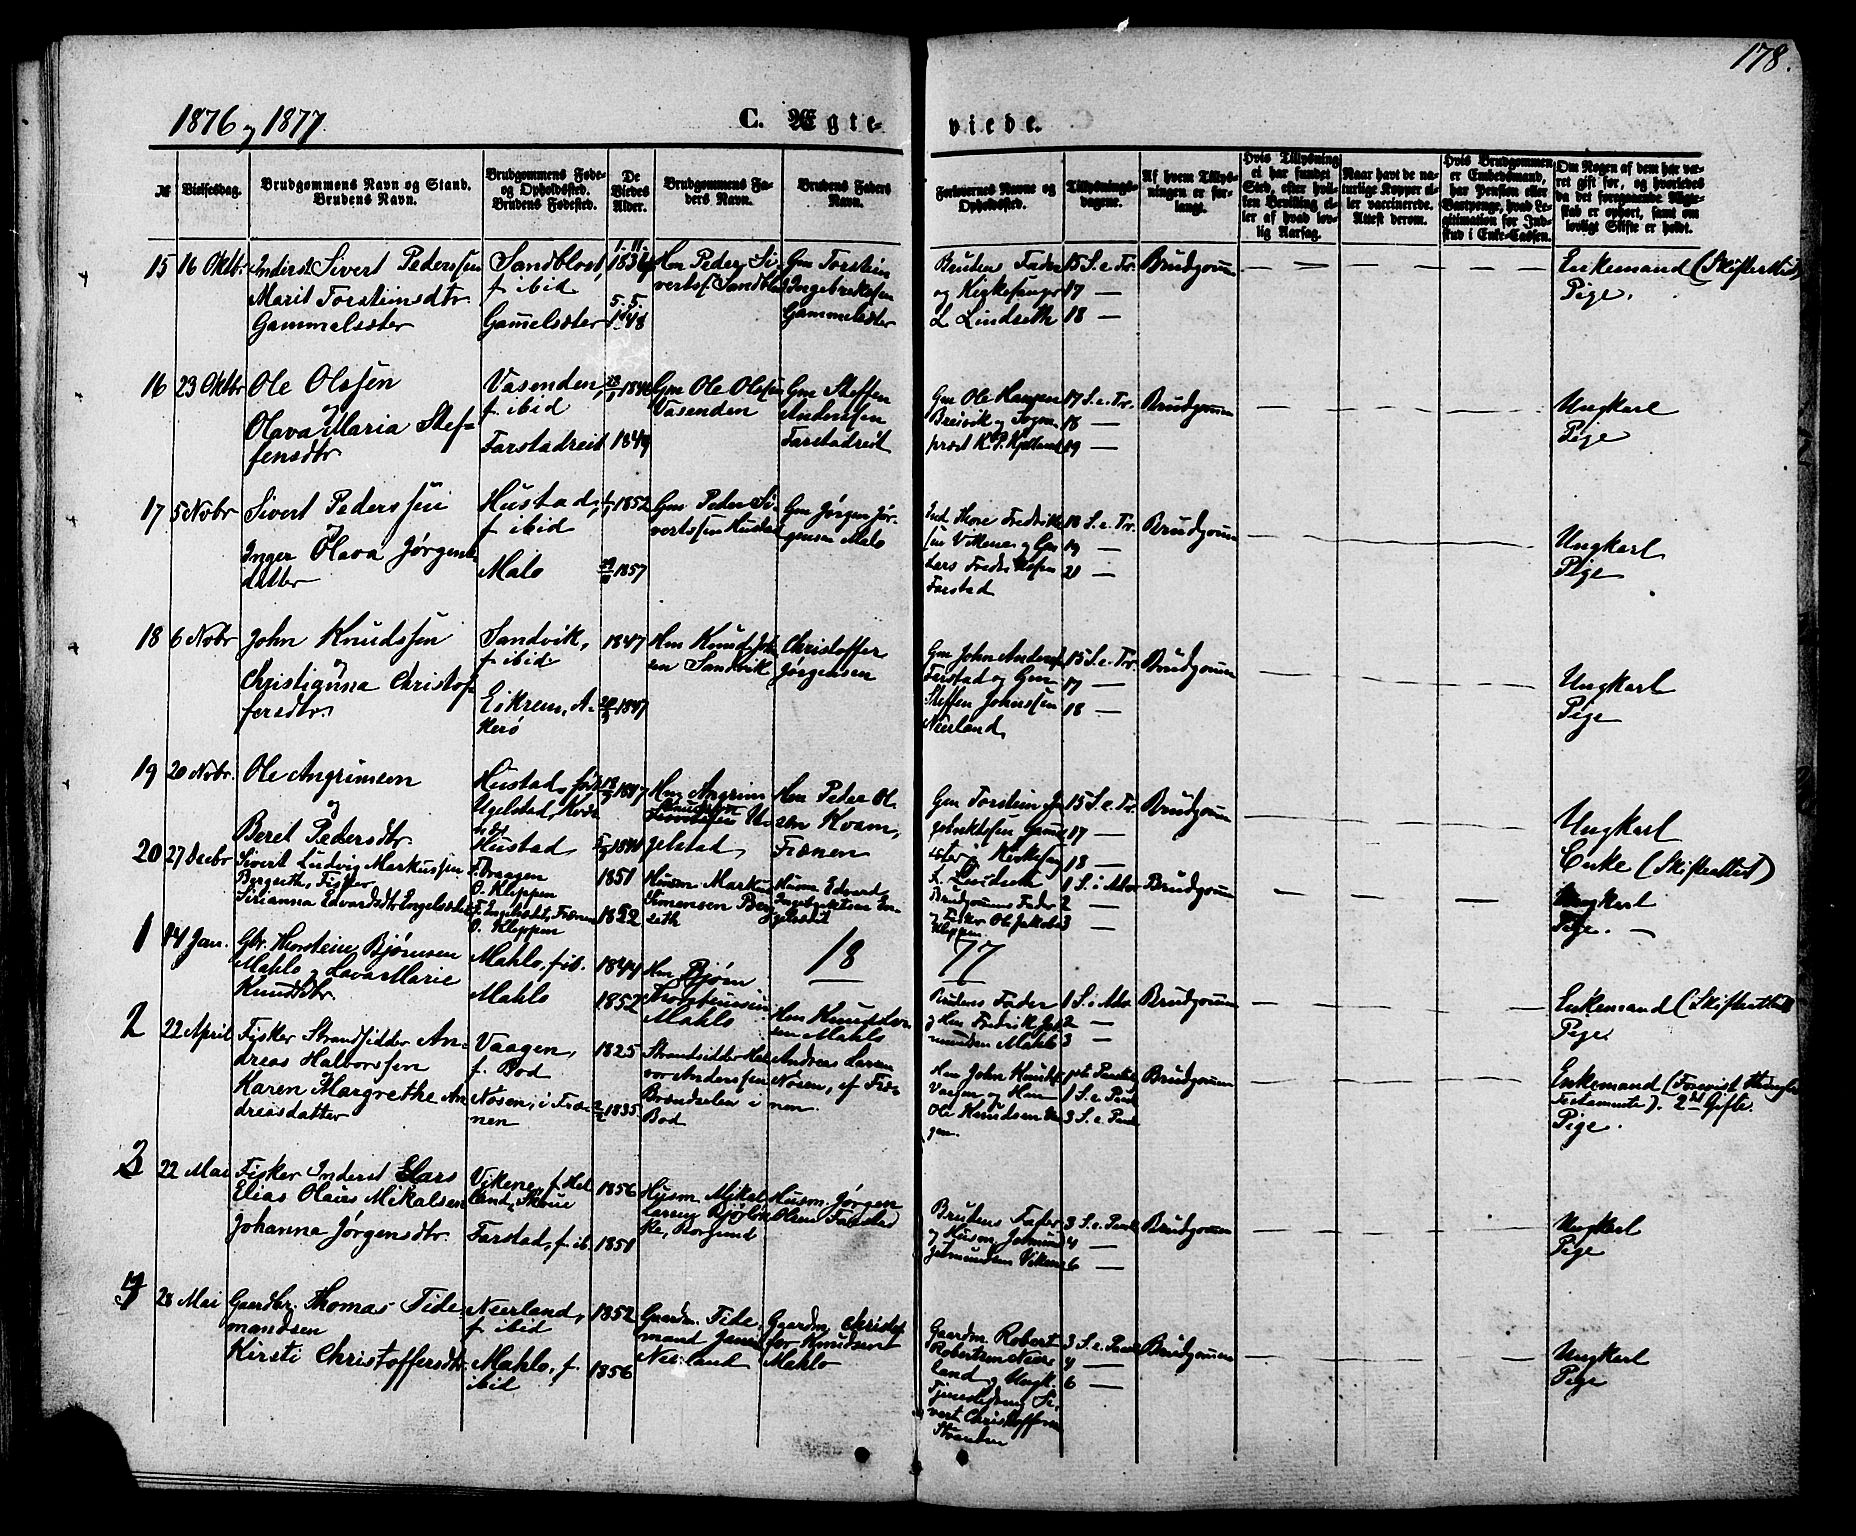 178.
1876 og 1877
C. Ægteviede.
№
Vielsesdag.
Brudgommens Navn og Stand.
Brudens Navn.
Brudgommens Føde-
og Opholdssted.
Brudens Fødested.
De
Viedes
Alder.
Brudgommens Fa-
ders Navn.
Brudens Faders
Navn.
Forlovernes Navne og
Opholdssted.
Tillysnings-
dagene.
Af hvem Tillys-
ningen er for-
langt.
Hvis Tillysning
ei har fundet
Sted, efter hvil-
ken Bevilling el-
ler af hvad lov-
lig Aarsag.
Naar havt de na-
turlige Kopper el-
ler vaccinerede.
Attest derom.
Hvis Brudgommen
er Embedsmand,
har Pension eller
Vartpenge, hvad Le-
gitimation for Ind-
skud i Enke-Cassen.
Om Nogen af dem har væ-
ret gift før, og hvorledes
da det foregaaende Ægte-
skab er ophørt, samt om
lovligt Skifte er holdt.
15 16 Oktb. Inderst Sivert Pederssen
Marit Torsteinsdtr
Gammelsæter
Sandblost,
f ibid
Gamelsæter
5. 5.
1848
Hm Peder Si-
vertss. Sandblost
Gm Torstein
Ingebrektsen
Gammelsæter
Brudens Fader
og Kirkesanger
L Lindseth
15 S. e. Tr.
17 —
18 —
Brudgom
Enkemand (Skifteattest)
Pige.
16 23 Oktbr Ole Olssen
og
Olava Maria Stef-
fensdtr
Vasenden,
f ibid
Farstadreit
1849
Gm Ole Olssen
Vasenden
Gm Steffen
Anderssen
Farstadreit
Gm Ole Hansen
Breivik og Sogne-
præst K. P. Kjelland
17 S. e. Tr.
18 —
19 —
Brudgom
Ungkarl
Pige
17 5 Novbr Sivert Pederssen
og
Inger Olava Jørgens-
datter
Hustad,
f ibid
Malo
1852
1857
Gm Peder Si-
vertssen Hustad
Gm Jørgen Jør-
gensen Malo
Farstad
18 S. e. Tr.
19 —
20 —
Brudgom
Ungkarl
Pige
18 6 Novbr John Knudssen
og
Christianna Christof-
fersdtr.
Sandvik,
f ibid
Eikrem, A-
kerø
1847
1847
Hm Knud Joh-
sen Sandvik
Christoffer
Jørgensen
Gm John Anders.
Farstad og Gm
Steffen Johnssen
Neerland
15 S. e. Tr.
17 —
18 —
Brudgom
Ungkarl
Pige
19 20 Novbr. Ole Angrimsen
og
Beret Pedersdtr
Hustad, født
Ugelstad, Kvær-
næs
Hustad
1847
Hm Angrim
Knudsen U-
gelstad
Hm Peder Ol-
sen Kvam,
Frænen
15 S. e. Tr.
17 —
18 —
Brudgom
Ungkarl
Enke (Skifteattest)
20 27 Decbr Sivert Ludvig Markussen
Bergseth, Fisker
Sirianna Edvardsdtr Engelsæt
O. Kleppen
F. Engelsæt, Frænen
O. Kleppen
1851
1852
Husm Markus
Simensen Berg-
seth
Husm Edvard
Ingebrektsen En-
gelsæt
Brudgommens Fader
og Fisker Ole Jakobs.
Kleppen
1 S. i Adv.
2 —
3 —
Brudgom
Ungkarl
Pige. —
1877
1 14 Jan. Gbr. Thorstein Bjørnsen
Mahlo og Lava Marie
Knudsdtr.
Mahlo, f ib.
Mahlo
1844
1852
Hm Bjørn
Thorsteinsen
Mahlo
Hm Knud Lar-
sen Mahlo
Brudens Fader
og Hm Fredrik Jet-
mundsen Mahlo
1 S. i Adv.
2 —
3 —
Brudgom
Enkemand (Skifteattest)
Pige.
2 22 April Fisker Strandsidder An-
dreas Halvorssen
og
Karen Margrethe An-
dreasdatter
Vaagen,
f. Bod
Nøsen, i Fræ-
nen
1825
1835
Strandsidder Hal-
vor Anderssen
Brændselen i
Bod
Andreas Larsen
Nøsen, af Fræ-
nen.
Hm John Knuds.
Vaagen og Hm
Ole Knudsen Vaa-
gen.
1 S. e. Pask
3 S. e. Pask
Brudgom
Enkemand (Forevist Thinglæst
Testamente). 2det Gifte.
Pige.
3 22 Mai Fisker Inderst Lars
Elias Olaus Mikalsen
Johanna Jørgensdtr.
Vikene, f. Hel-
land, Skoue
Farstad, f. ib.
1856
1851
Husm Mikal
Larsen Bjørløk-
ke, Borgund
Husm. Jørgen
Olsen Farstad
Brudens Fader
og Husm. Jetmund
Jetmundsen Vikene
3 S. e. Pask
4 —
6 —
Brudgom
Ungkarl
Pige
4 28 Mai Gaardbr. Thomas Tide-
mandsen
Kirsti Christoffersdtr
Neerland,
f ibid
Mahlo, f.
ibid
1852
1856
Gaardm. Tide-
mand Jansen
Neerland
Gaardm Christof-
fer Knudsen
Mahlo
Gaardm Robert
Robertsen Neer-
land og Ungk.
Tjenestedreng Si-
vert Christoffersen
Stranden
3 S. e. Pask
4 —
6 —
Brudgommen
Ungkarl
Pige